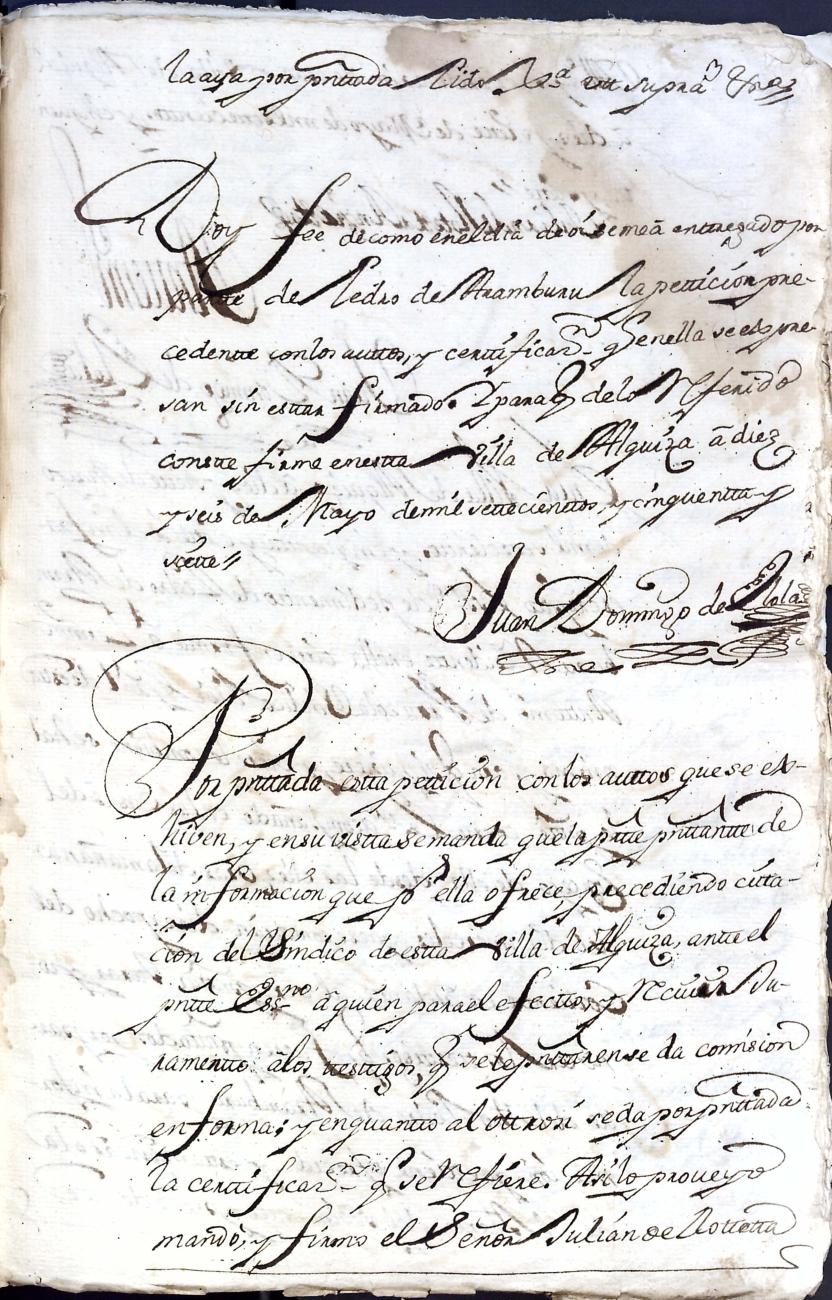 la aya por pnttada Pido Jusª ut supra
Doy fee de como en el dia de oi se me a entregado por
partte de Pedro de Aramburu la petticion pre-
cedentte con los auttos, y certtificaon q en ella se expre-
san sin esttar firmado. Y para q de lo Referido
constte firme en estta Villa de Alquiza a diez
y seis de Mayo de mil settecienttos, y cinquentta y
siette
Juan Domingo de
Por pnttada estta petticion con los auttos que se ex-
hiven, y en su vistta se manda que la ptte pnttantte de
la informacion que pr ella ofrece, precediendo citta-
cion del Sindico de estta Villa de Alquiza, antte el
pntte Essno a quien para el efectto, y Recivir Ju-
ramentto a los testtigos q se le pnttaren se da comision
en forma; y en quantto al ottrosi se da por pnttada
la certtificaon q se Refiere. Asi lo proveyo
mando, y firmo el Señor Julian de Rottetta